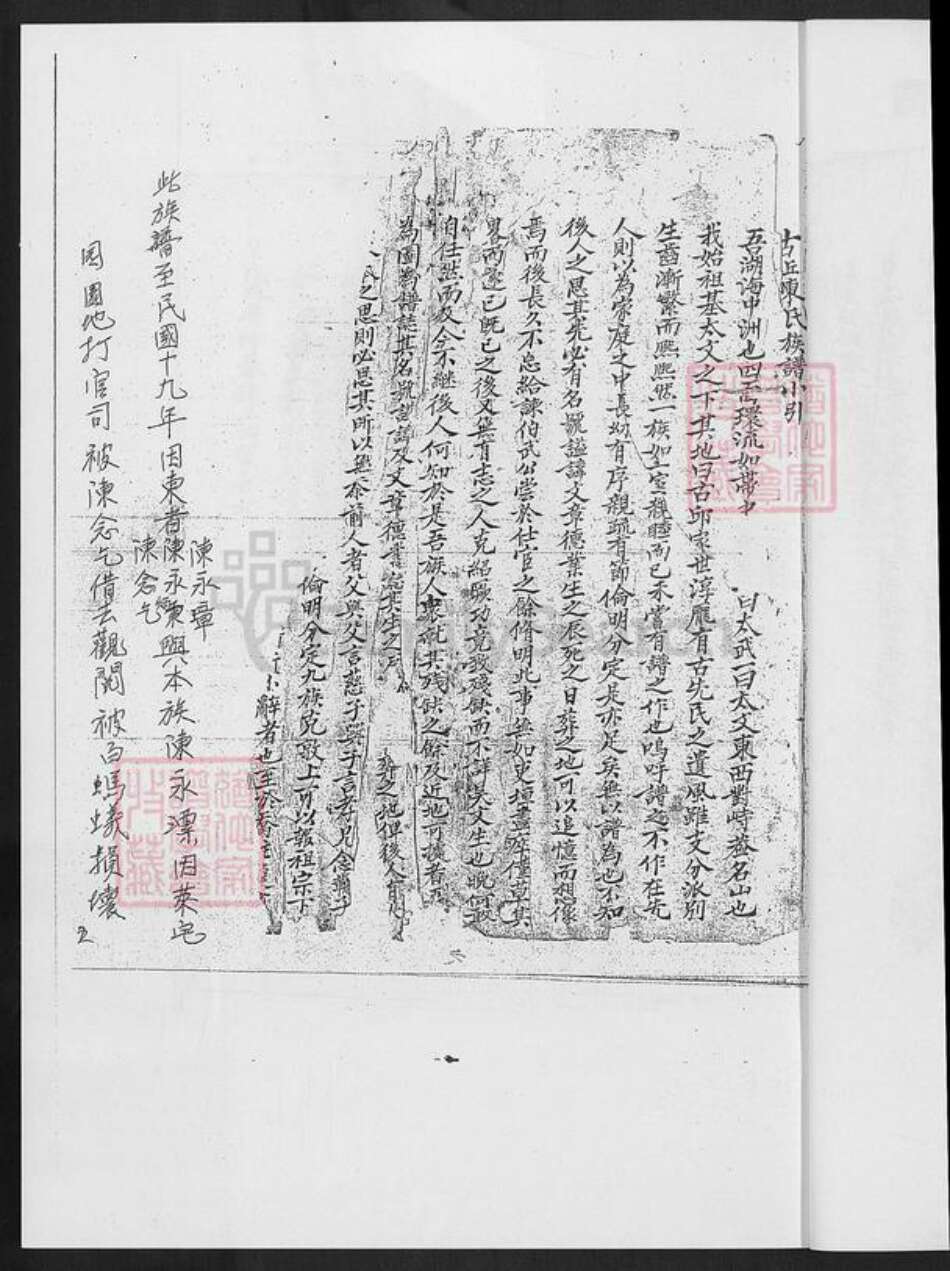 古丘陳氏族譜小引
吾湖海中洲也四面環流如帶中 曰太武一曰太文東西對峙蓋名山也
我始祖基太文之下其地曰古邱家世淳龐有古先民之遺風雖支分派別
生齒漸繁而熙熙然一族如一室親睦而已未嘗有譜之作也嗚呼譜之不作在先
人則以為家庭之中長幼有序親疏有節倫明分定是亦足矣無以譜為也不知
後人之思其先必有名號諡諱文章德業生之辰死之日葬之地可以追憶而想像
焉而後長久不忘給諫伯武公嘗於仕宦之餘脩明此事無如史壇 僅草其
畧而遂已既已之後又無有志之人克紹厥功竟致殘缺而不詳吴文生也晚何敢
自任然而及今不繼後人何知於是吾族人衆就其殘缺之餘及近地可據者
為圖為譜誌其名號諡諱及文章德業 其生之 葬之地俾後人有
之思則必思其所以無忝前人者父與父言慈子與子言孝兄念
倫明分定九族克敦上可以報祖宗下
辭者也
此族譜至民國十九年因東者 陳永璋 陳永東 陳念乞 與本族陳永漂因葉宅
因園地打官司被陳念乞借去觀閱被白螞蟻損壞